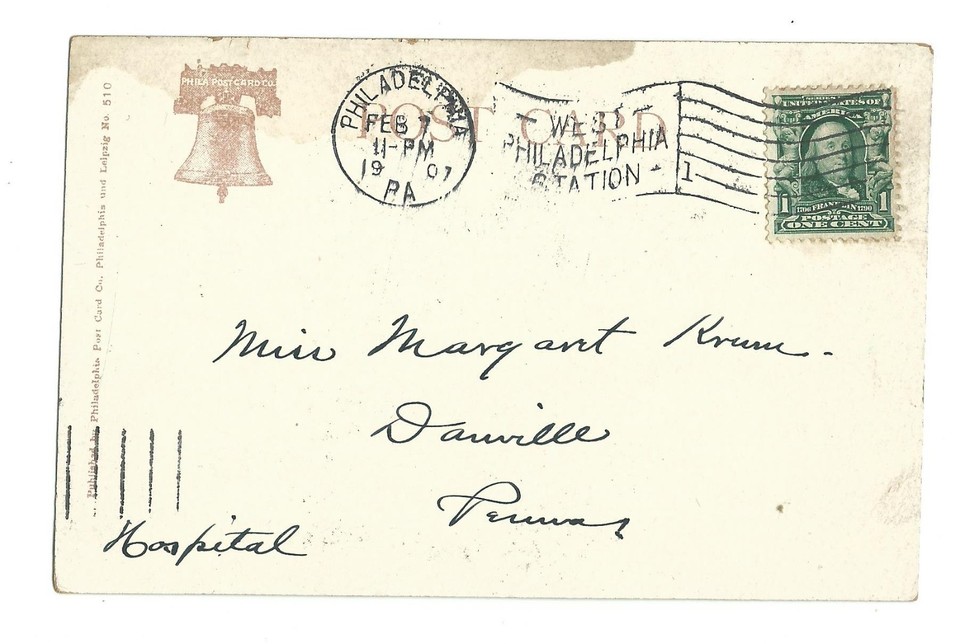 PHILA POST CARD CO.
POST CARD
PHILADELPHIA
FEB 7
11-PM
19 07
PA
WES
PHILADELPHIA
STATION
1
SERIES 1902
UNITED STATES OF
AMERICA
1706 FRANKLIN 1790
1 POSTAGE 1
ONE CENT
Published by Philadelphia Post Card Co. Philadelphia und Leipzig No. 510
Miss Margaret Krum.
Danville
Penna
Hospital